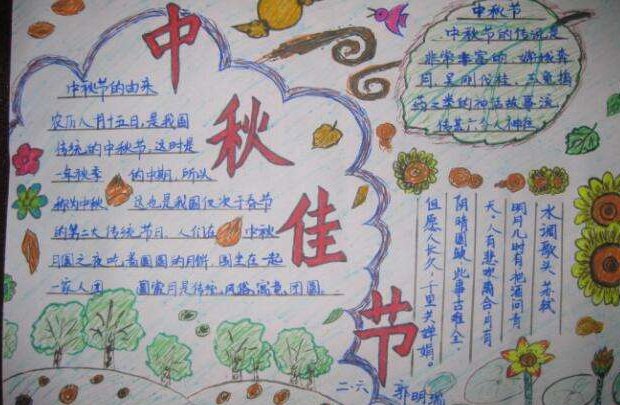 中秋佳节
中秋节的由来
农历八月十五日,是我国
传统的中秋节,这时是
一年秋季 的中期,所以
称为中秋。 这也是我国仅次于春节
的第二大传统节日,人们在 中秋
月圆之夜吃着圆圆的月饼,围坐在一起
一家人团 圆赏月是传统
寓意,团圆
中秋节
中秋节的传说是
非常丰富的,嫦娥奔
月,吴刚伐桂,玉兔捣
药之类的神话故事流
传甚广
水调歌头 苏轼
明月几时有把酒问青
天,人有悲欢离合,月有
阴晴圆缺,此事古难全.
但愿人长久,千里共婵娟。
二.六 郭明瑞